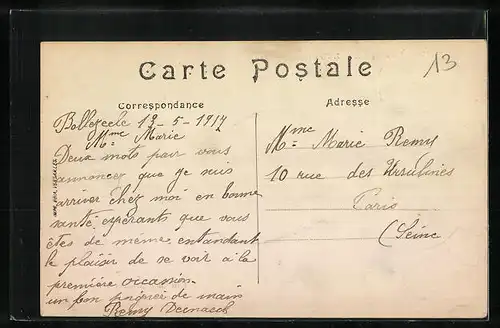 13
Carte Postale
Correspondance
Adresse
Bollezeele 13-5-1917
Mme Marie
Deux mots pour vous
annoncez que je suis
arriver chez moi en bonne
santé espérant que vous
êtes de même entandant
le plaisir de se voir à la
première occasion.
un bon poigner de main
Remy
Mme Marie Remy
10 rue des Ursulines
Paris
(Seine